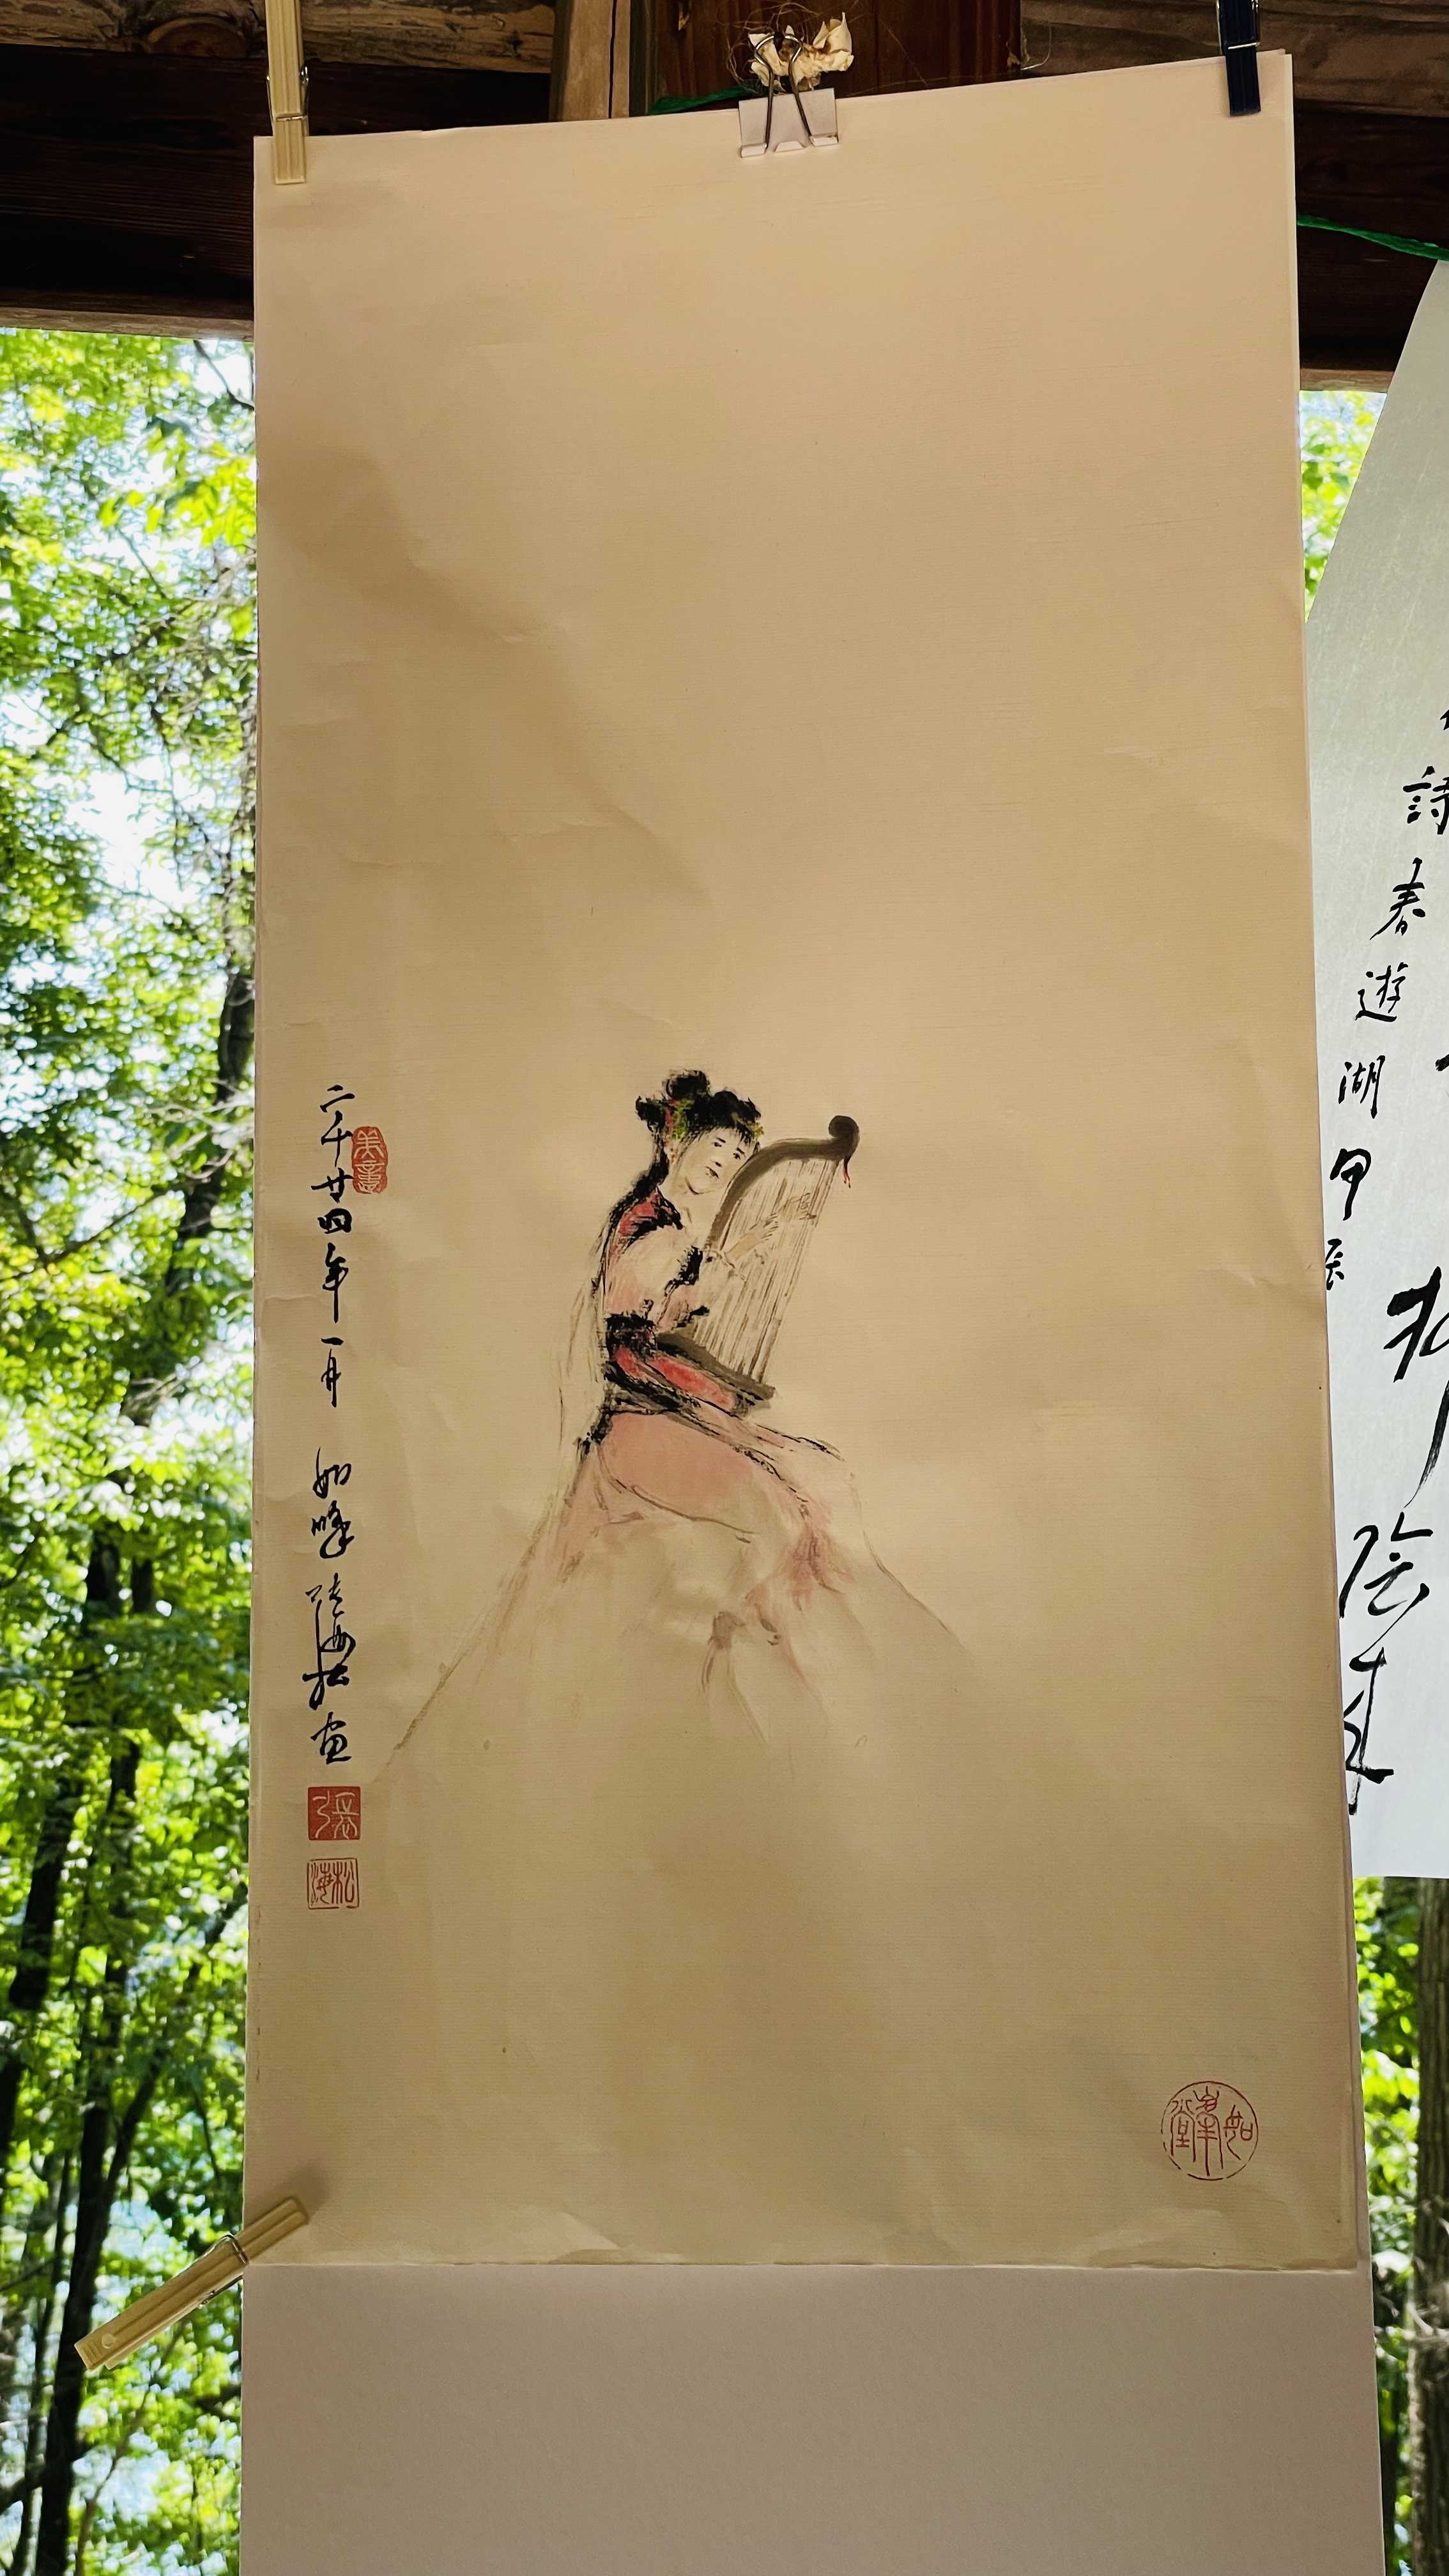 二千廿四年一月 如峰 張海松 画
美意
張
海松
如峯堂
詩春遊湖甲辰